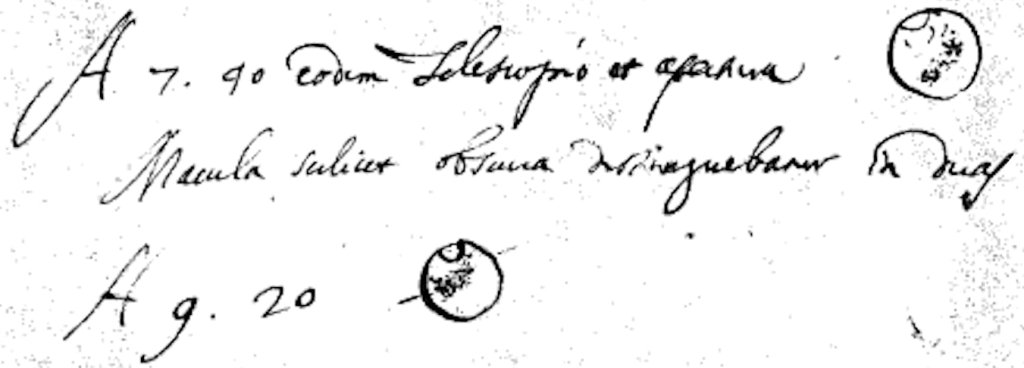 A 7. 40 eodem Telescopio et apertura
Macula scilicet obscura distinguebatur in duas
A 9. 20